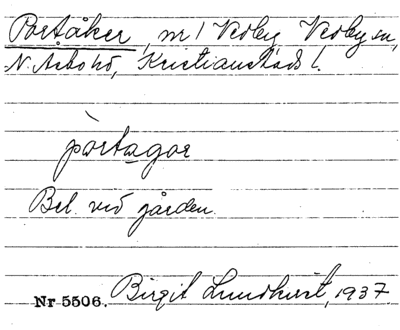 Portåker, nr 1 Vedby, Vedby sn,
N. Åsbo hd, Kristianstads l.
pòrtagor
Bel. vid gården.
Nr 5506. Birgit Lundkvist, 1937.